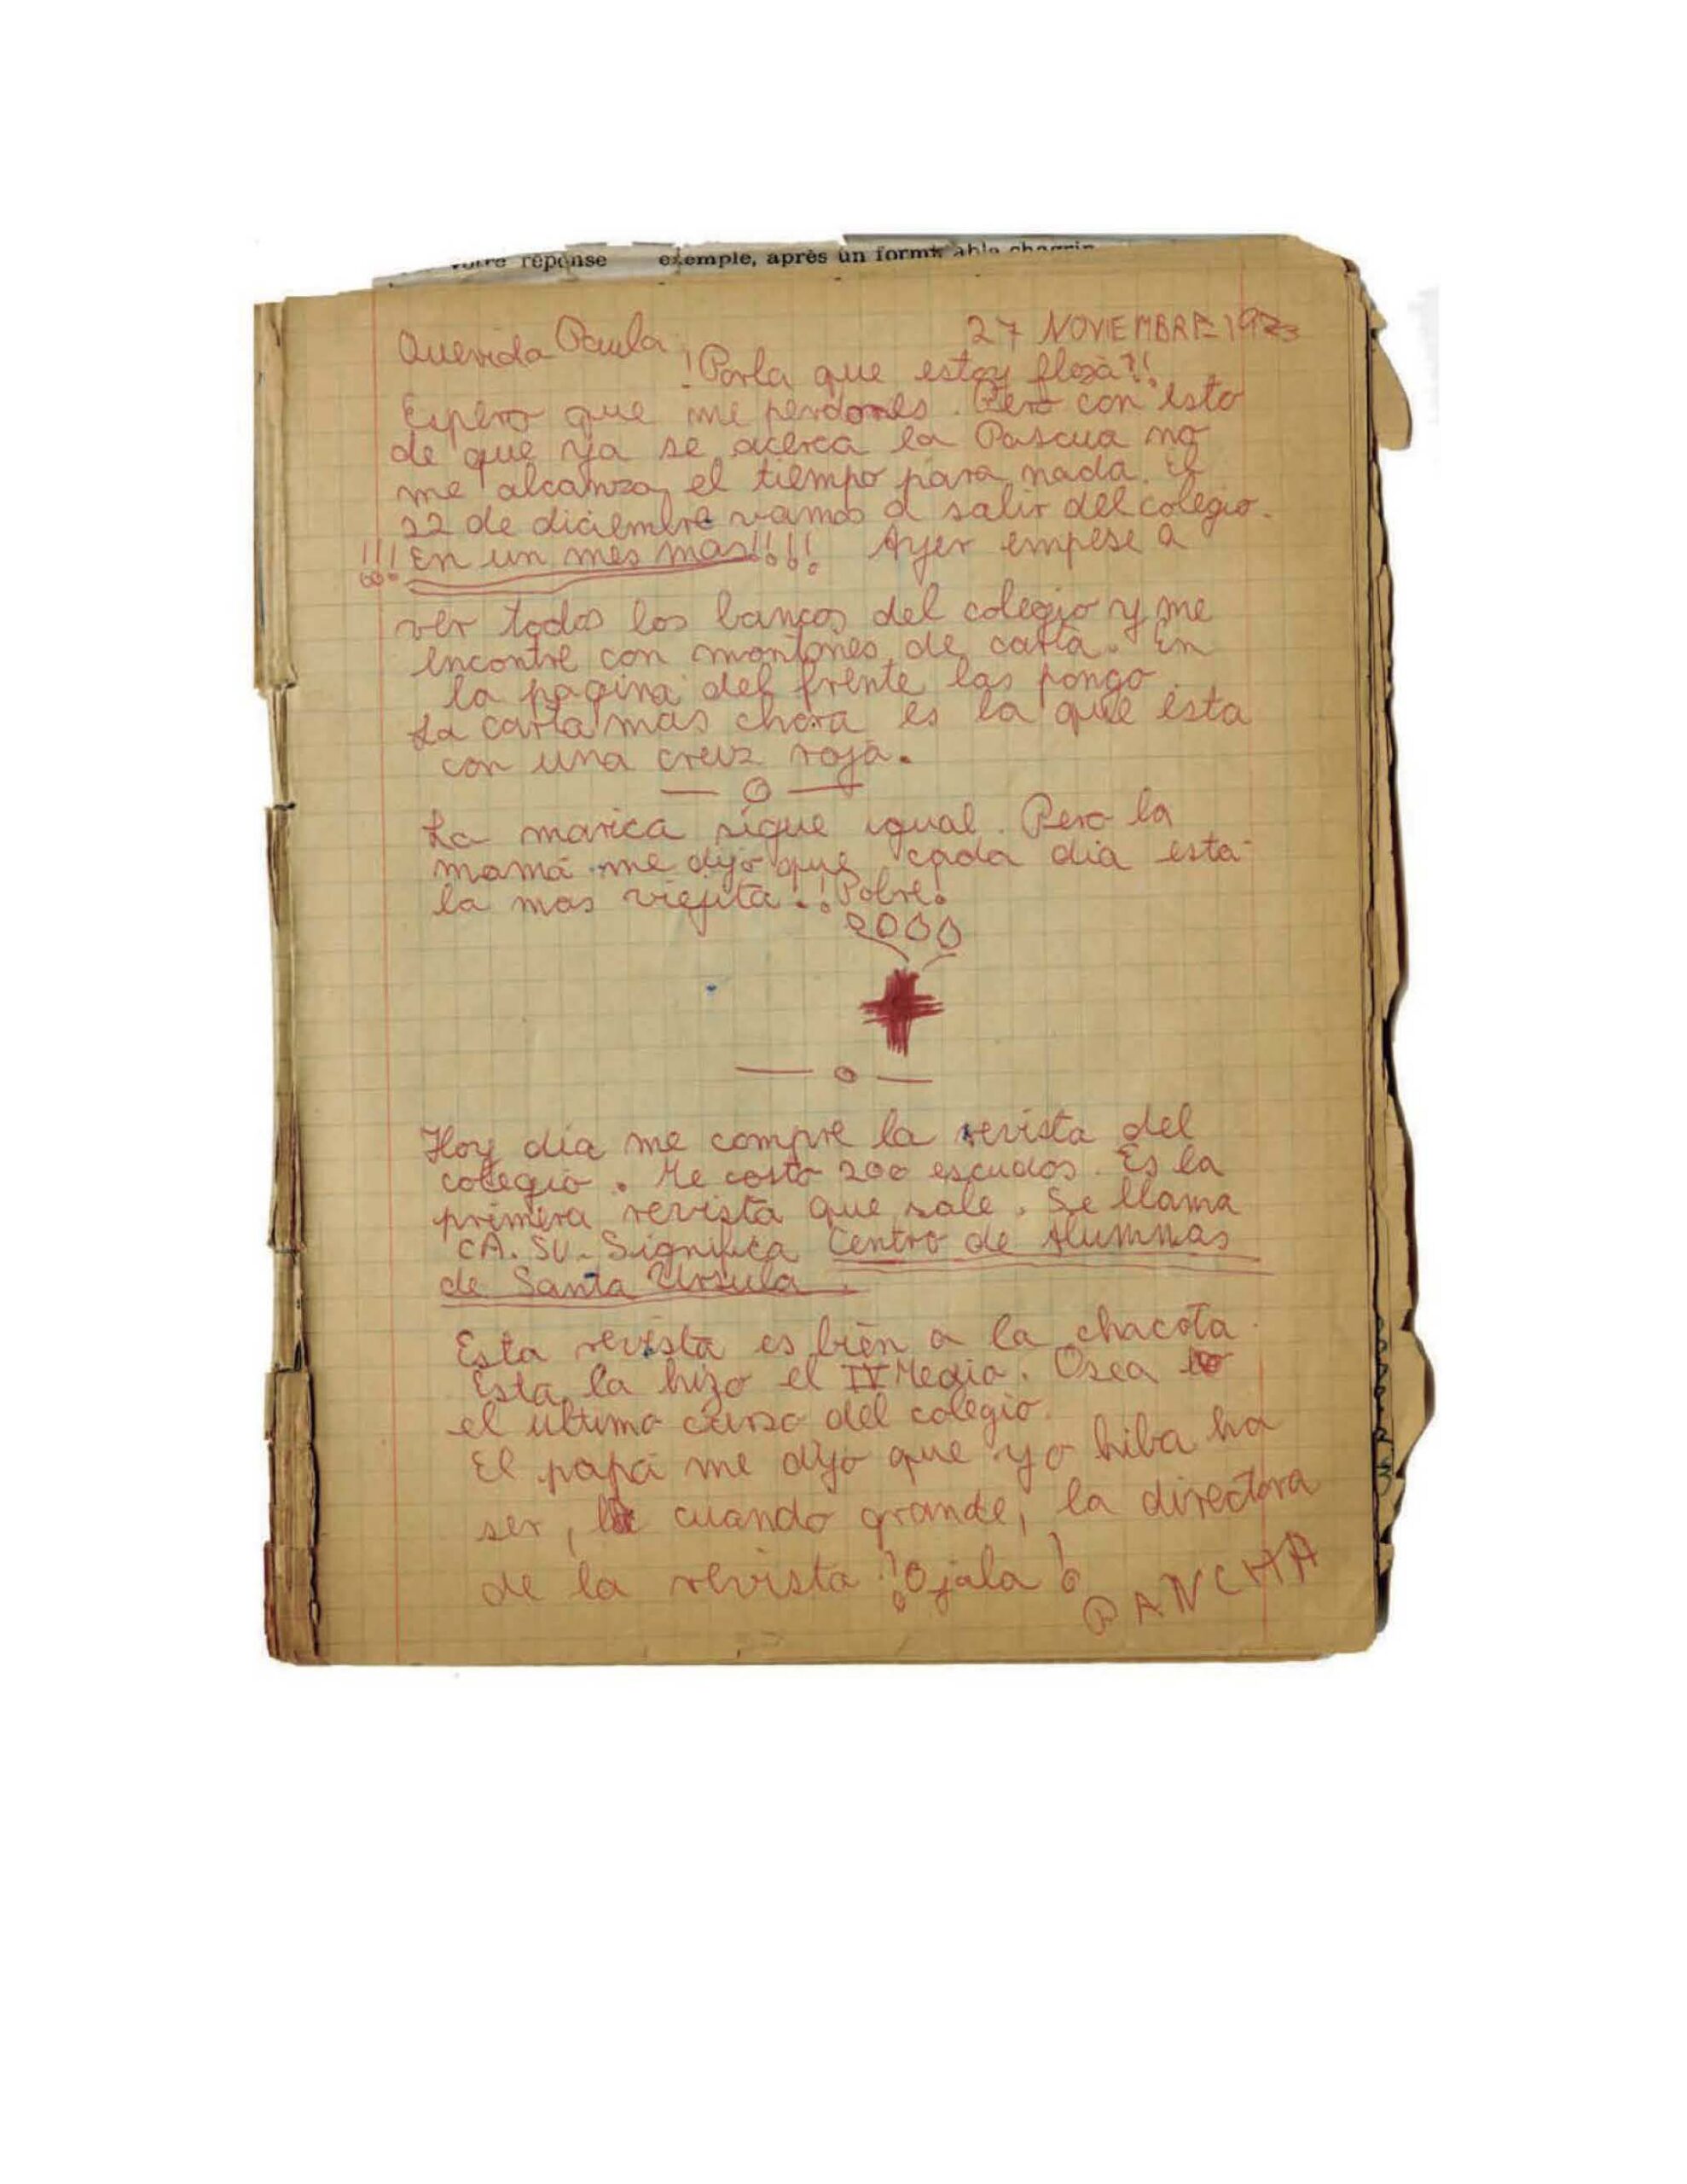 votre réponse exemple, après un formi able chagrin
27 NOVIEMBRE 1973
Querida Paula
!Porla que estoy floja?!
Espero que me perdones. Pero con esto
de que ya se acerca la Pascua no
me alcanza el tiempo para nada. El
22 de diciembre vamos a salir del colegio.
!!! En un mes mas!!!! Ayer empese a
ver todos los bancos del colegio y me
encontre con montones de carta. En
la pagina del frente las pongo.
La carta mas chora es la que esta
con una creuz roja.
— o —
La marica sigue igual. Pero la
mamá me dijo que cada dia esta
la mas viejita. ¡Pobre!
— o —
Hoy dia me compre la revista del
colegio. Me costo 200 escudos. Es la
primera revista que sale. Se llama
CA. SU. Significa Centro de Alumnas
de Santa Ursula.
Esta revista es bien a la chacota.
Esta la hizo el IV Medio. Osea
el ultimo curso del colegio.
El papá me dijo que yo hiba ha
ser, cuando grande, la directora
de la revista !Ojala!
PANCHA